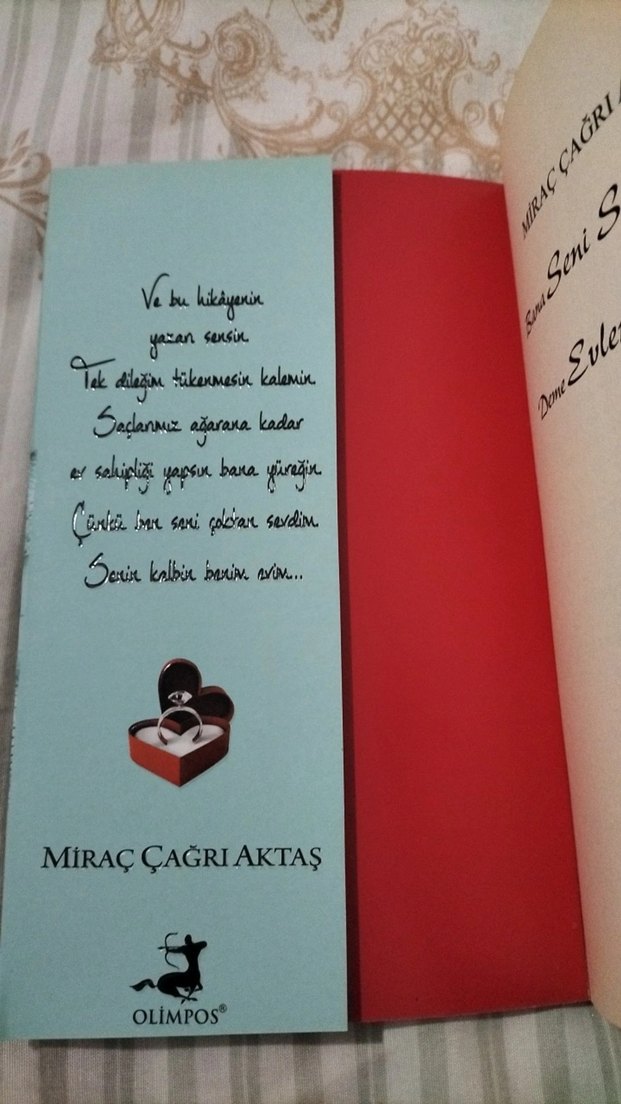 Ve bu hikâyenin
yazarı sensin
Tek dileğim tükenmesin kalemin
Saçlarımız ağarana kadar
ev sahipliği yapsın bana yüreğin
Çünkü ben seni çoktan sevdim
Senin kalbin benim evim...
MİRAÇ ÇAĞRI AKTAŞ
OLİMPOS®
MİRAÇ ÇAĞRI
Bana Seni
Deme